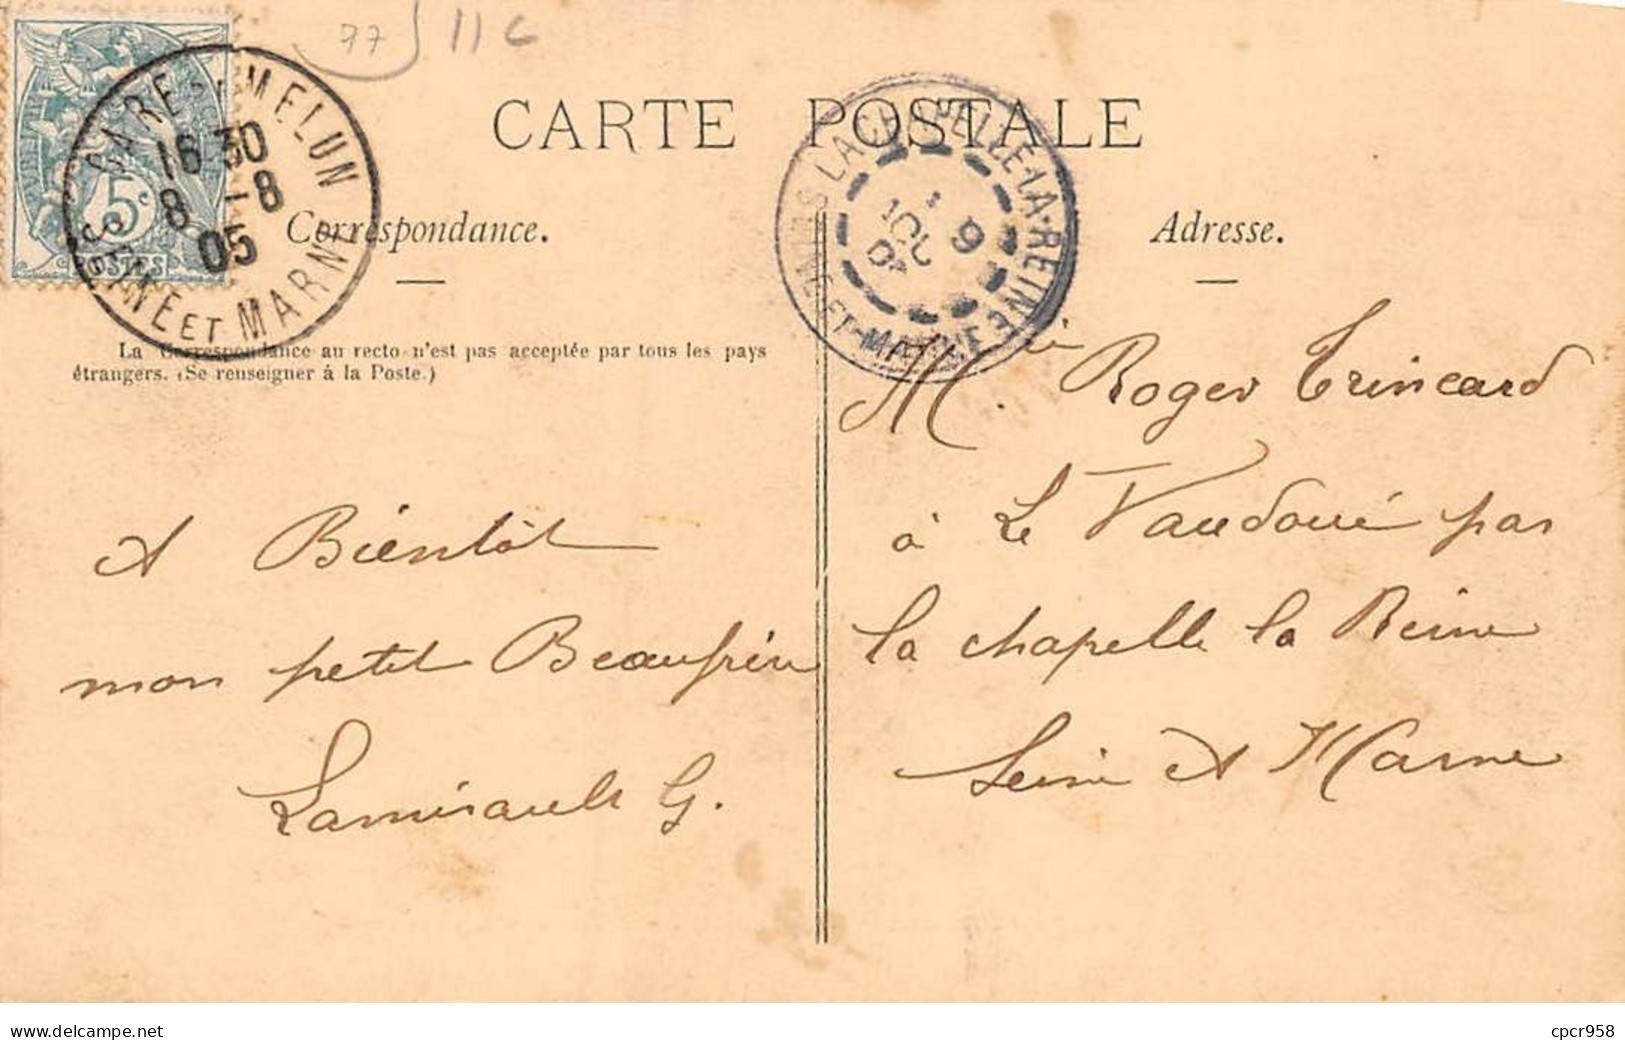 77 11 C
CARTE POSTALE
5c
POSTES
GARE DE MELUN
16 30
8 -8
05
SEINE ET MARNE
LA CHAPELLE-LA-REINE
9
SEINE-ET-MARNE
Correspondance.
Adresse.
La Correspondance au recto n'est pas acceptée par tous les pays
étrangers. (Se renseigner à la Poste.)
A Bientôt
mon petit Beaufrère
Lamirault G.
M. Roger Trincard
à Le Vaudoué par
la chapelle la Reine
Seine et Marne
cpcr958